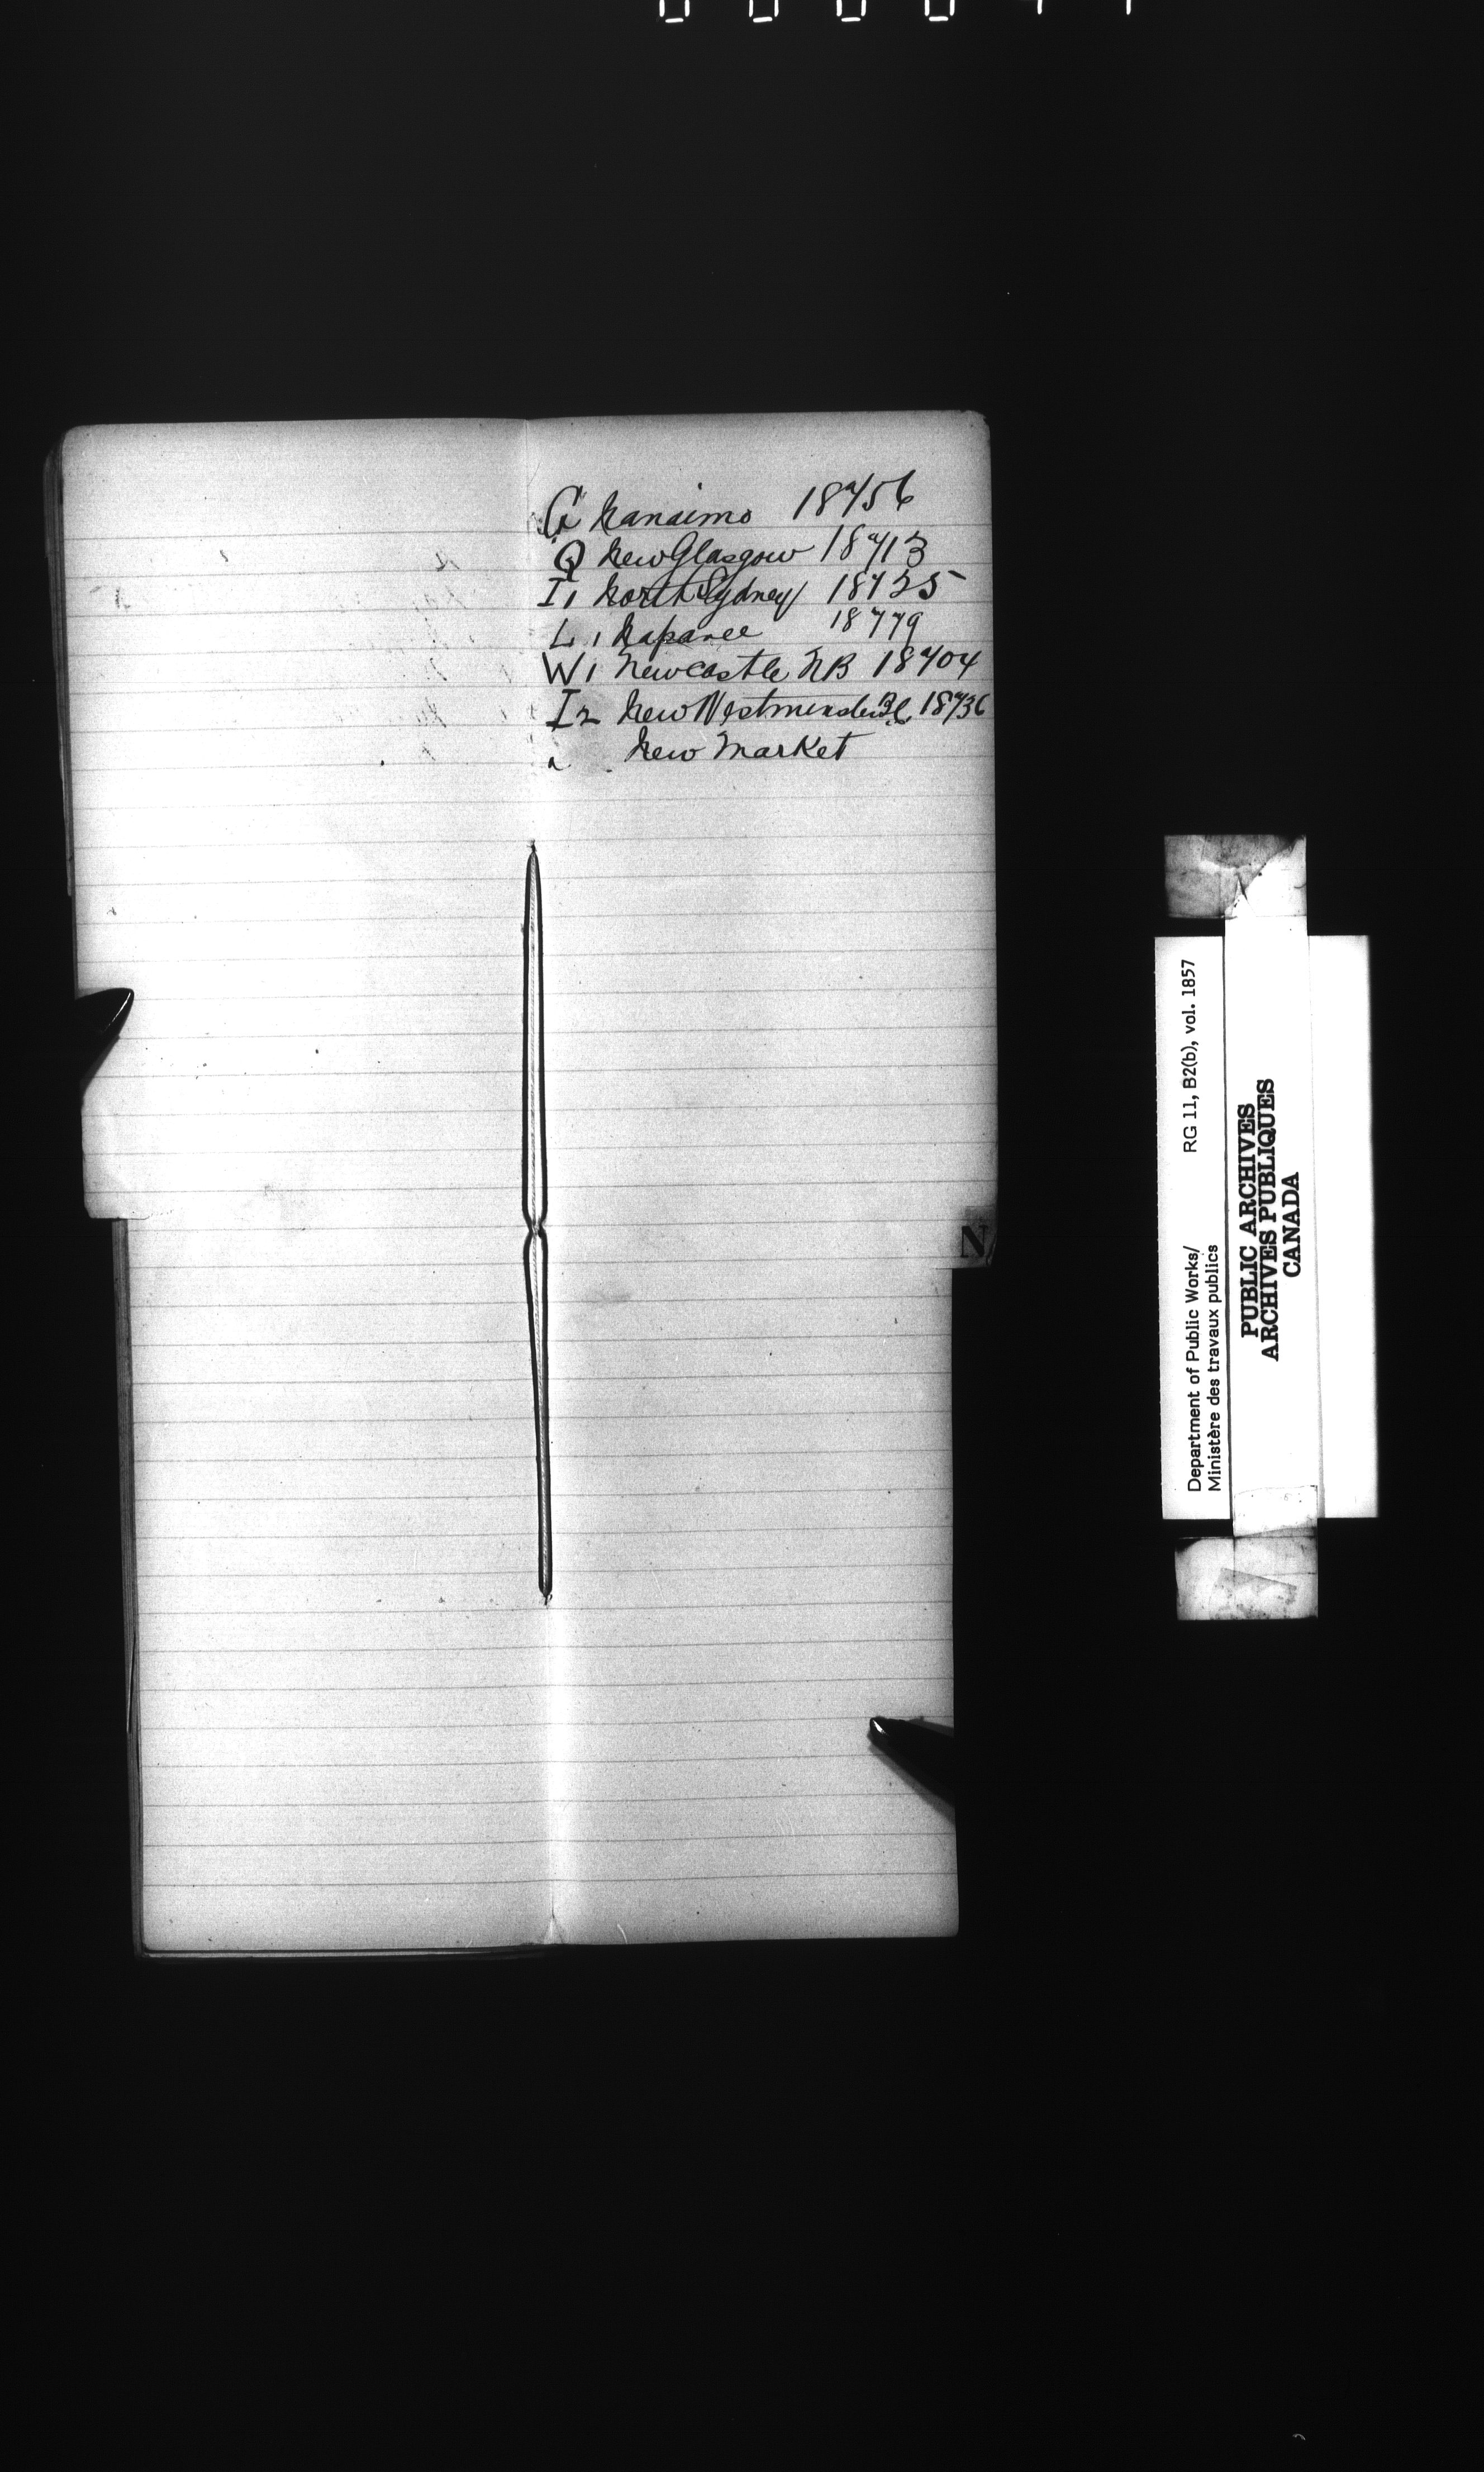 G Nanaimo 18756
Q New Glasgow 18713
I1 North Sydney 18725
L1 Napanee 18779
W1 Newcastle NB 18704
I2 New Westminster BC 18736
New Market
N
Department of Public Works/ RG 11, B2(b), vol. 1857
Ministère des travaux publics
PUBLIC ARCHIVES
ARCHIVES PUBLIQUES
CANADA